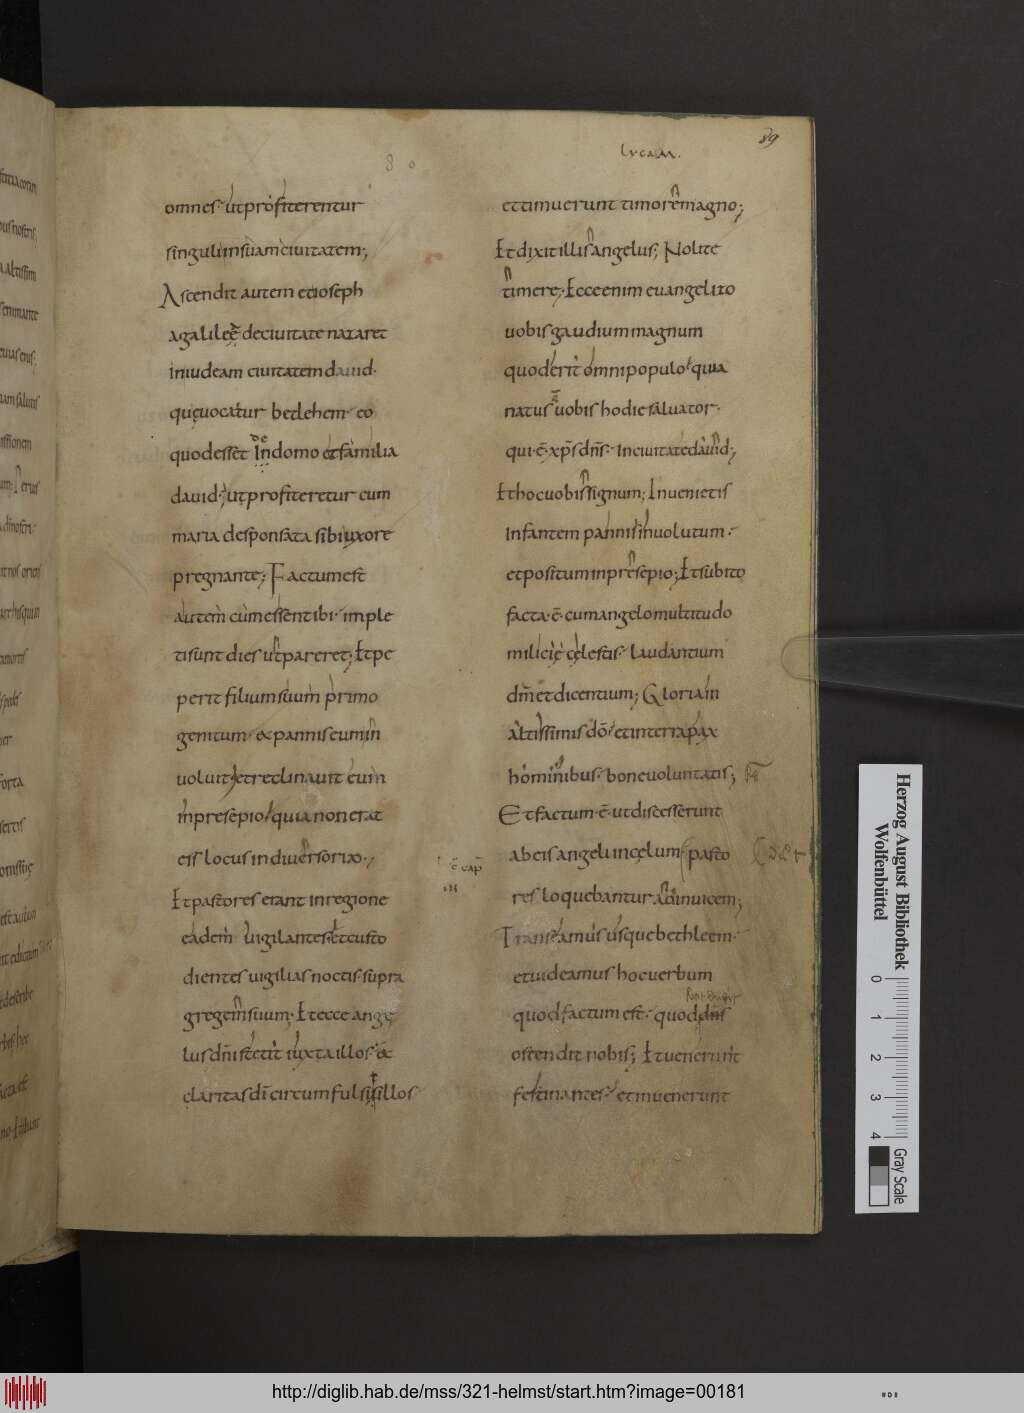 89
lucam.
80
omnes· ut profiterentur
singuli in suam ciuitatem;
Ascendit autem et ioseph
a galileę de ciuitate nazaret
in iudeam ciuitatem dauid·
quę uocatur betlehem· eo
quod esset de in domo et familia
dauid· ut profiteretur cum
maria desponsata sibi uxore
pregnante; Factum est
autem cum essent ibi· imple
ti sunt dies ut pareret; Et pe
perit filium suum primo
genitum· & pannis eum in
uoluit; et reclinauit eum
in presepio· quia non erat
eis locus in diuersorio;
Et pastores erant in regione
eadem uigilantes et custo
dientes uigilias noctis supra
gregem suum; Et ecce ange
lus dñi stetit iuxta illos· &
claritas dī circumfulsit illos·
et timuerunt timore magno;
Et dixit illis angelus; Nolite
timere; Ecce enim euangelizo
uobis gaudium magnum
quod erit omni populo· quia
natus ē uobis hodie saluator·
qui· ē· xp̄s dn̄s· In ciuitate dauid;
Et hoc uobis signum; Inuenietis
Infantem pannis inuolutum·
et positum in presepio; Et subito
facta· ē· cum angelo multitudo
milicię cęlestis· laudantium
dm̄ et dicentium; Gloria in
altissimis dō· et in terra pax
hominibus· bone uoluntatis;
Et factum· ē· ut discesserunt
ab eis angeli in cęlum· pasto
res loquebantur ad inuicem;
Transeamus usque bethleem·
et uideamus hoc uerbum
quod factum est· quod dn̄s
ostendit nobis; Et uenerunt
festinantes· et inuenerunt
Herzog August Bibliothek
Wolfenbüttel
0 1 2 3 4
Gray Scale
http://diglib.hab.de/mss/321-helmst/start.htm?image=00181